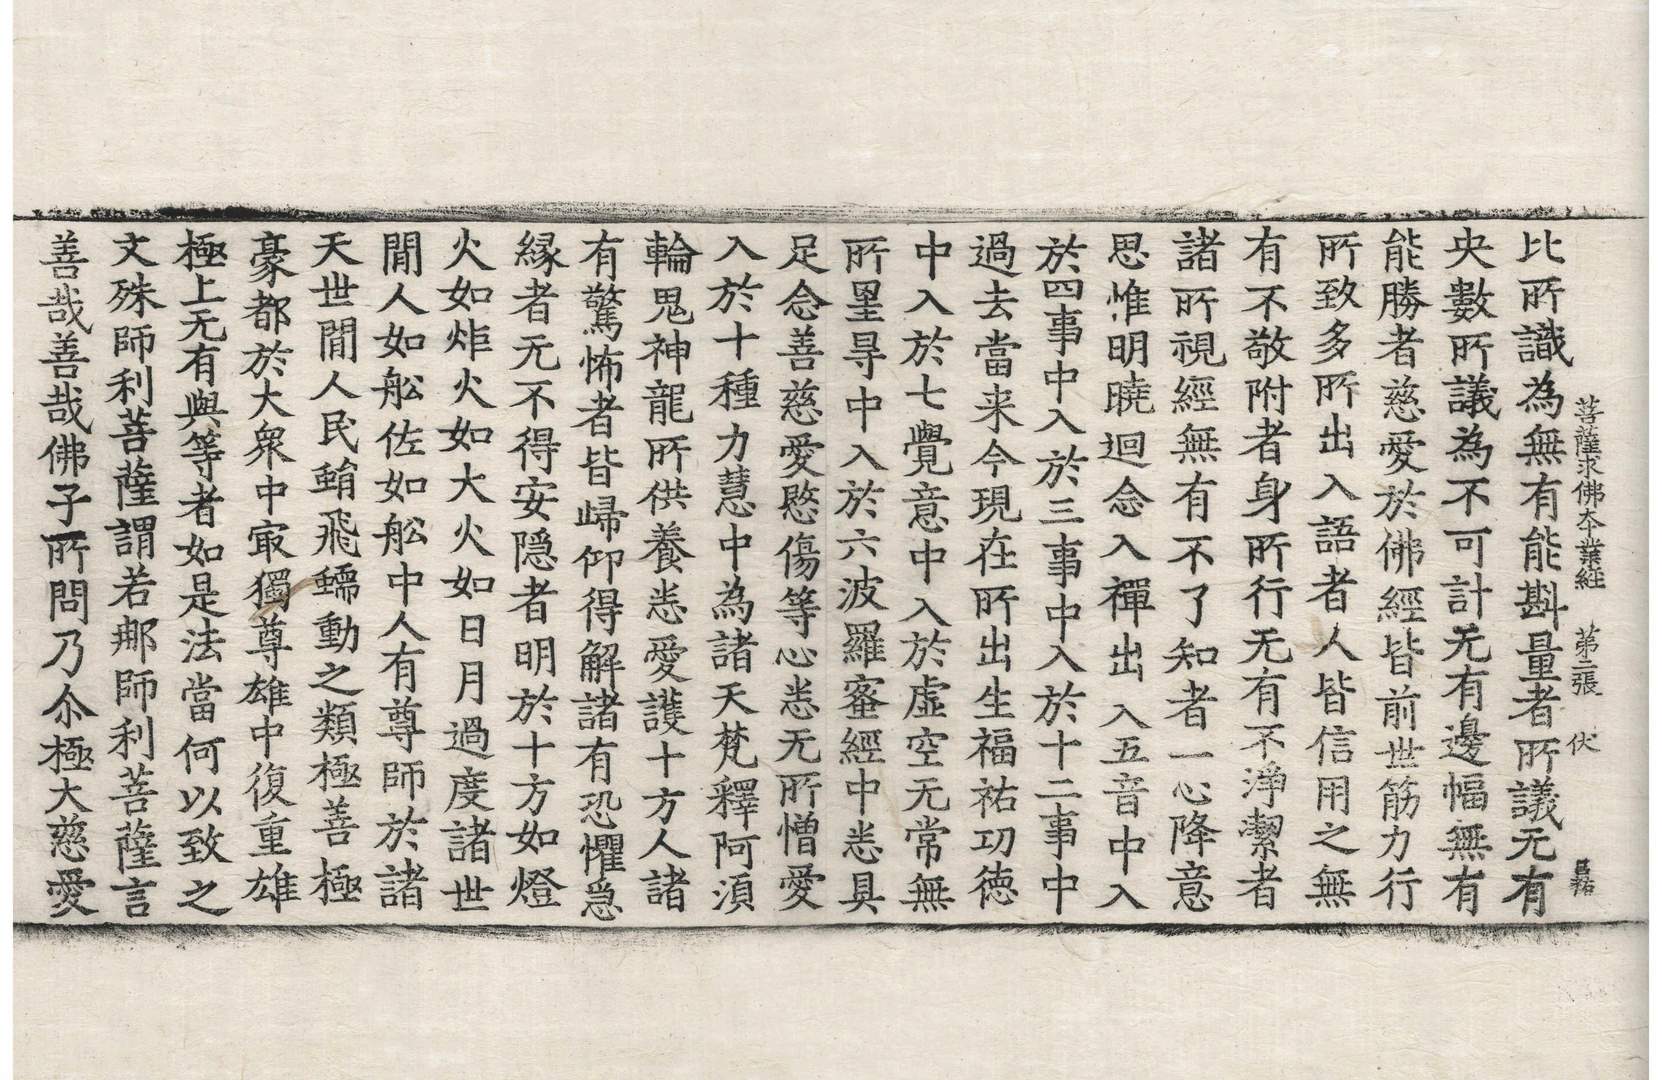 菩薩求佛本業経 第二張 伏
比所識為無有能斟量者所議无有
央數所議為不可計无有邊幅無有
能勝者慈愛於佛經皆前世筋力行
所致多所出入語者人皆信用之無
有不敬附者身所行无有不淨潔者
諸所視經無有不了知者一心降意
思惟明曉迴念入禪出入五音中入
於四事中入於三事中入於十二事中
過去當来今現在所出生福祐功徳
中入於七覺意中入於虛空无常無
所罣㝵中入於六波羅蜜經中悉具
足念善慈愛愍傷等心悉无所憎愛
入於十種力慧中為諸天梵釋阿湏
輪鬼神龍所供養悉愛護十方人諸
有驚怖者皆歸仰得解諸有恐懼急
縁者无不得安隠者明於十方如燈
火如炬火如大火如日月過度諸世
間人如舩佐如舩中人有尊師於諸
天世間人民蜎飛蠕動之類極善極
豪都於大衆中㝡獨尊雄中復重雄
極上无有與等者如是法當何以致之
文殊師利菩薩謂若那師利菩薩言
善哉善哉佛子所問乃尒極大慈愛